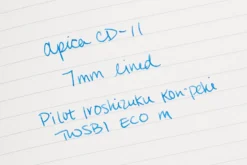 apica CD-11
7mm lined
Pilot Iroshizuku Kon-peki
TWSBI ECO M